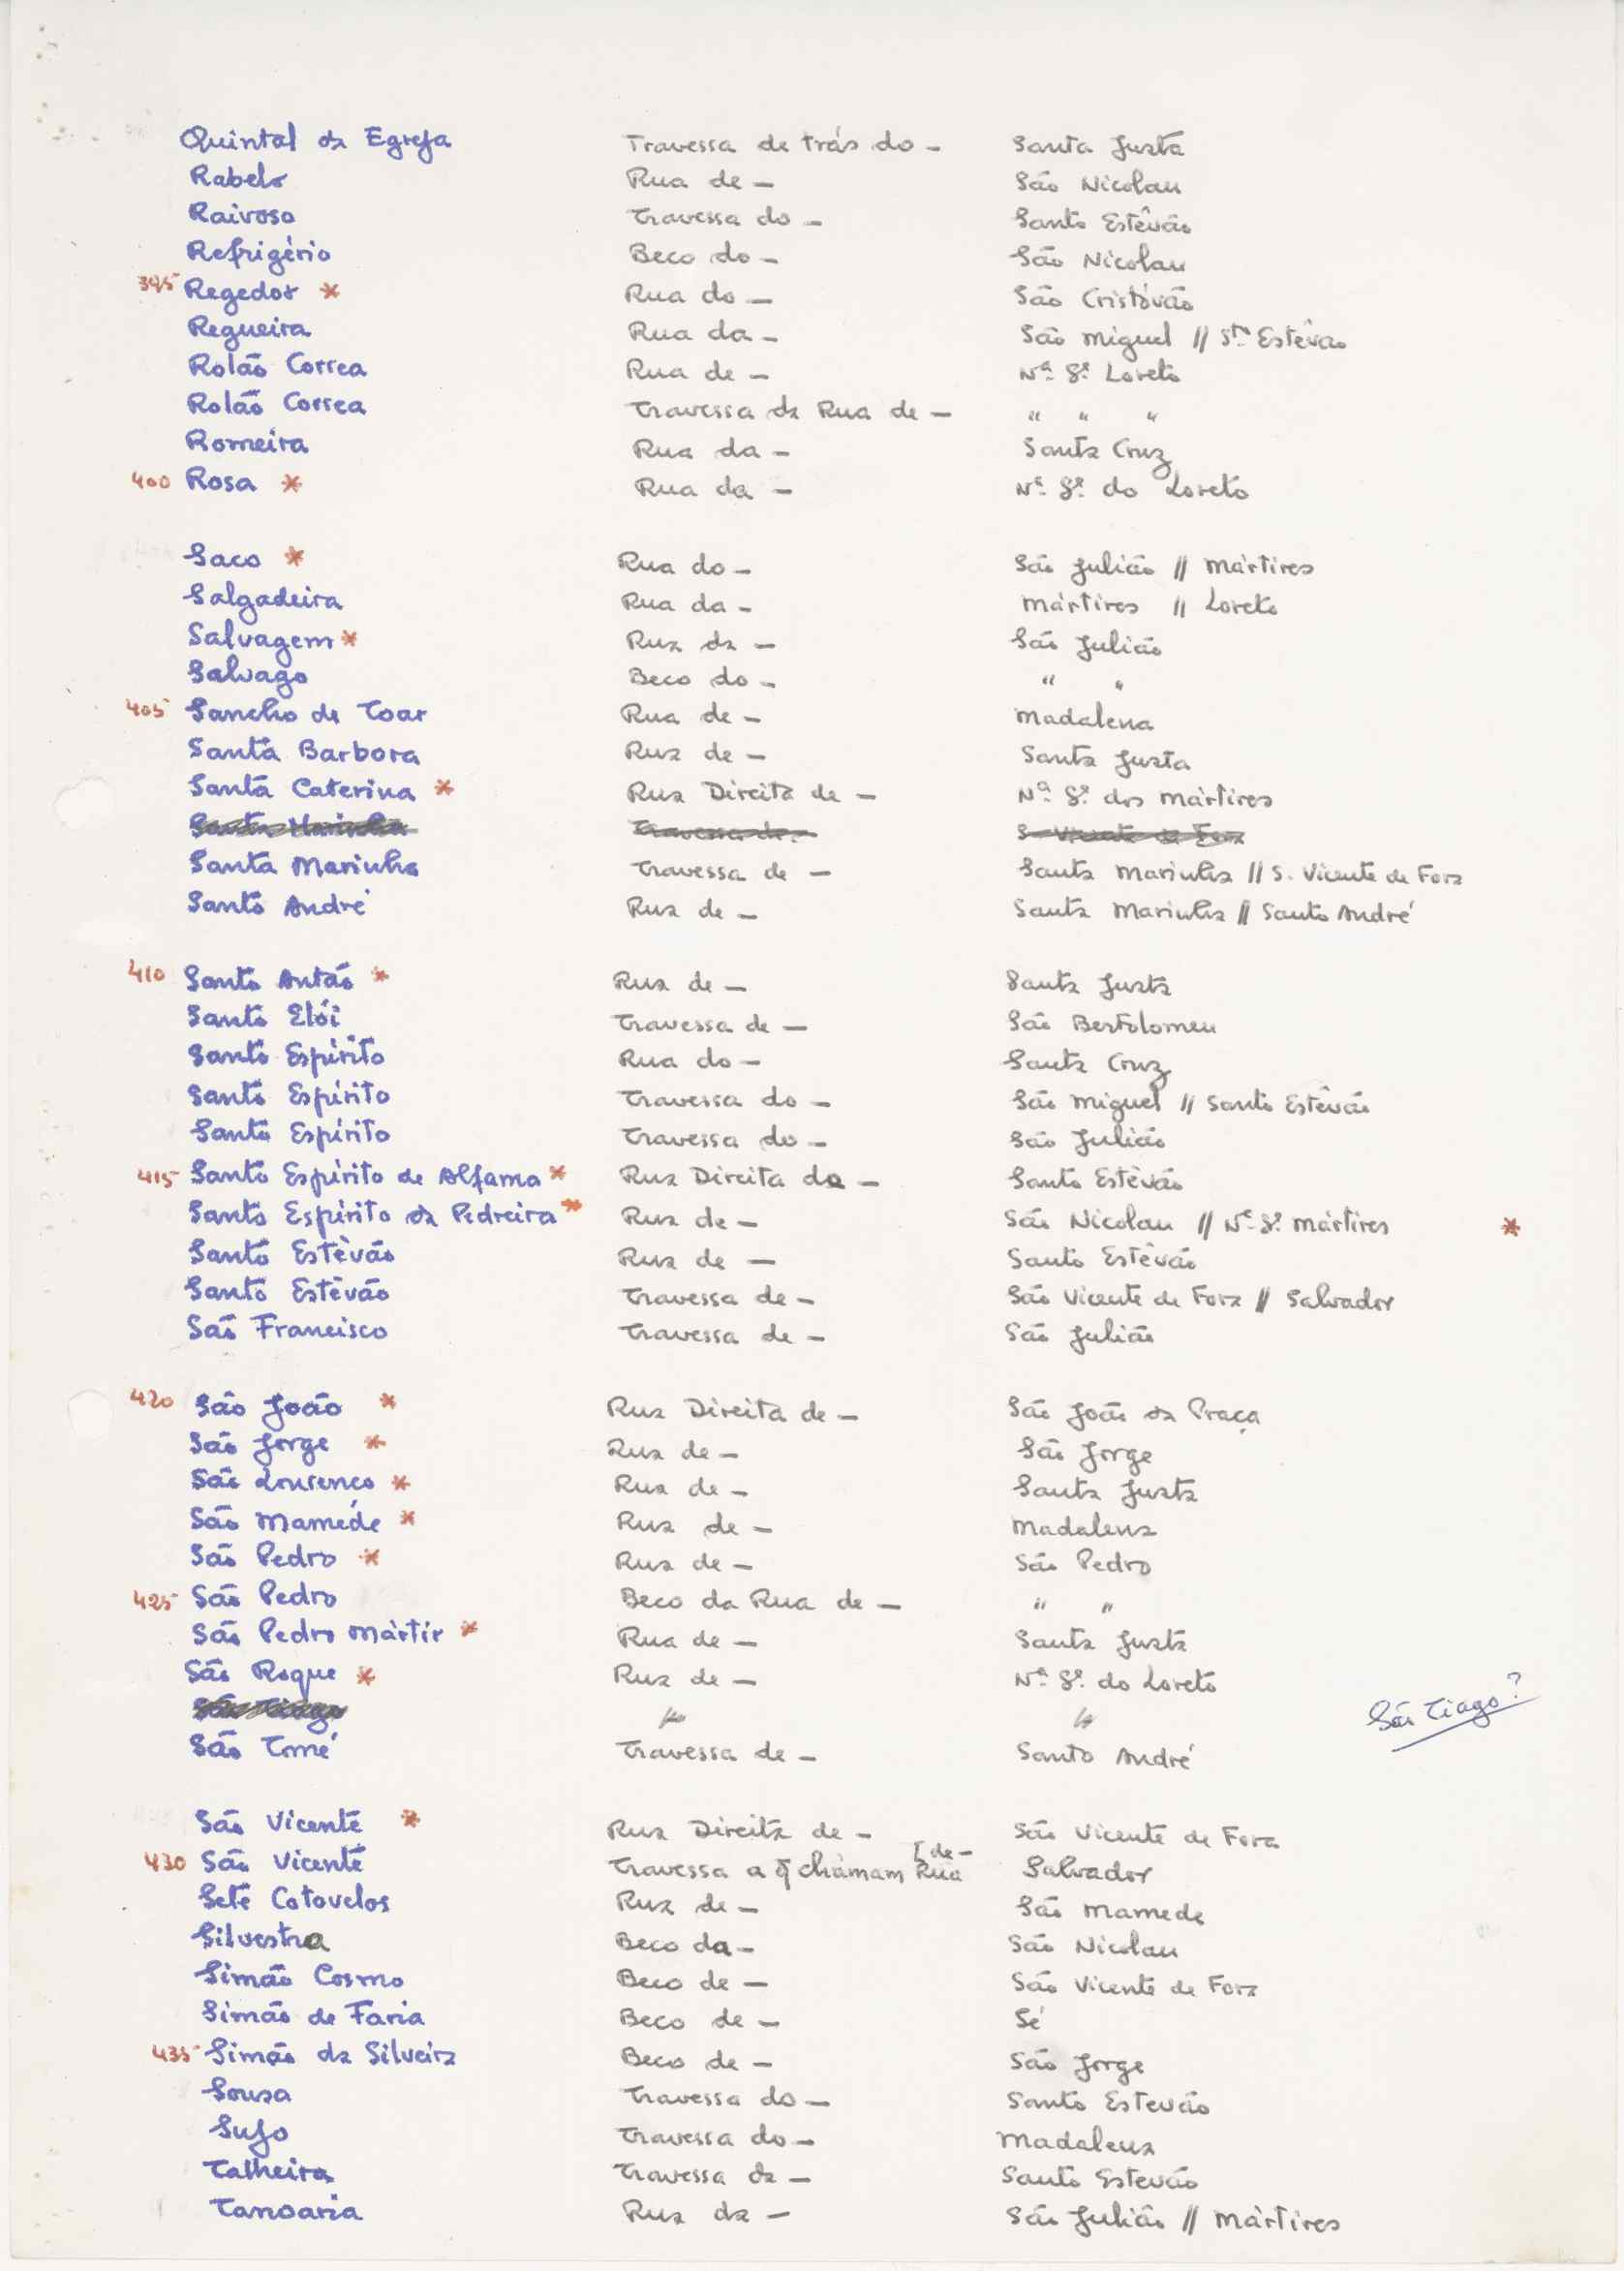 Quintal da Egreja Travessa de trás do – Santa Justa
Rabelo Rua de – São Nicolau
Raivoso Travessa do – Santo Estêvão
Refrigério Beco do – São Nicolau
395 Regedor * Rua do – São Cristóvão
Regueira Rua da – São Miguel // Stº Estêvão
Rolão Correa Rua de – Nª Sª Loreto
Rolão Correa Travessa da Rua de – " " "
Romeira Rua da – Santa Cruz
400 Rosa * Rua da – Nª Sª do Loreto
Saco * Rua do – São Julião // Mártires
Salgadeira Rua da – Mártires // Loreto
Salvagem * Rua da – São Julião
Salvago Beco do – " "
405 Sancho de Toar Rua de – Madalena
Santa Barbora Rua de – Santa Justa
Santa Caterina * Rua Direita de – Nª Sª dos Mártires
Santa Marinha Travessa de – S. Vicente de Fora
Santa Marinha Travessa de – Santa Marinha // S. Vicente de Fora
Santo André Rua de – Santa Marinha // Santo André
410 Santo Antão * Rua de – Santa Justa
Santo Elói Travessa de – São Bertolomeu
Santo Espírito Rua do – Santa Cruz
Santo Espírito Travessa do – São Miguel // Santo Estêvão
Santo Espírito Travessa do – São Julião
415 Santo Espírito de Alfama * Rua Direita do – Santo Estêvão
Santo Espírito da Pedreira * Rua de – São Nicolau // Nª Sª Mártires *
Santo Estêvão Rua de – Santo Estêvão
Santo Estêvão Travessa de – São Vicente de Fora // Salvador
São Francisco Travessa de – São Julião
420 São João * Rua Direita de – São João da Praça
São Jorge * Rua de – São Jorge
São Lourenço * Rua de – Santa Justa
São Mamede * Rua de – Madalena
São Pedro * Rua de – São Pedro
425 São Pedro Beco da Rua de – " "
São Pedro Mártir * Rua de – Santa Justa
São Roque * Rua de – Nª Sª do Loreto
São Tiago São Tiago?
São Tomé Travessa de – Santo André
São Vicente * Rua Direita de – São Vicente de Fora
430 São Vicente Travessa a q̃ chamam Rua [de – Salvador
Sete Cotovelos Rua de – São Mamede
Silvestra Beco da – São Nicolau
Simão Cosmo Beco de – São Vicente de Fora
Simão de Faria Beco de – Sé
435 Simão da Silveira Beco de – São Jorge
Sousa Travessa do – Santo Estevão
Sujo Travessa do – Madalena
Talheira Travessa da – Santo Estevão
Tanoaria Rua da – São Julião // Mártires